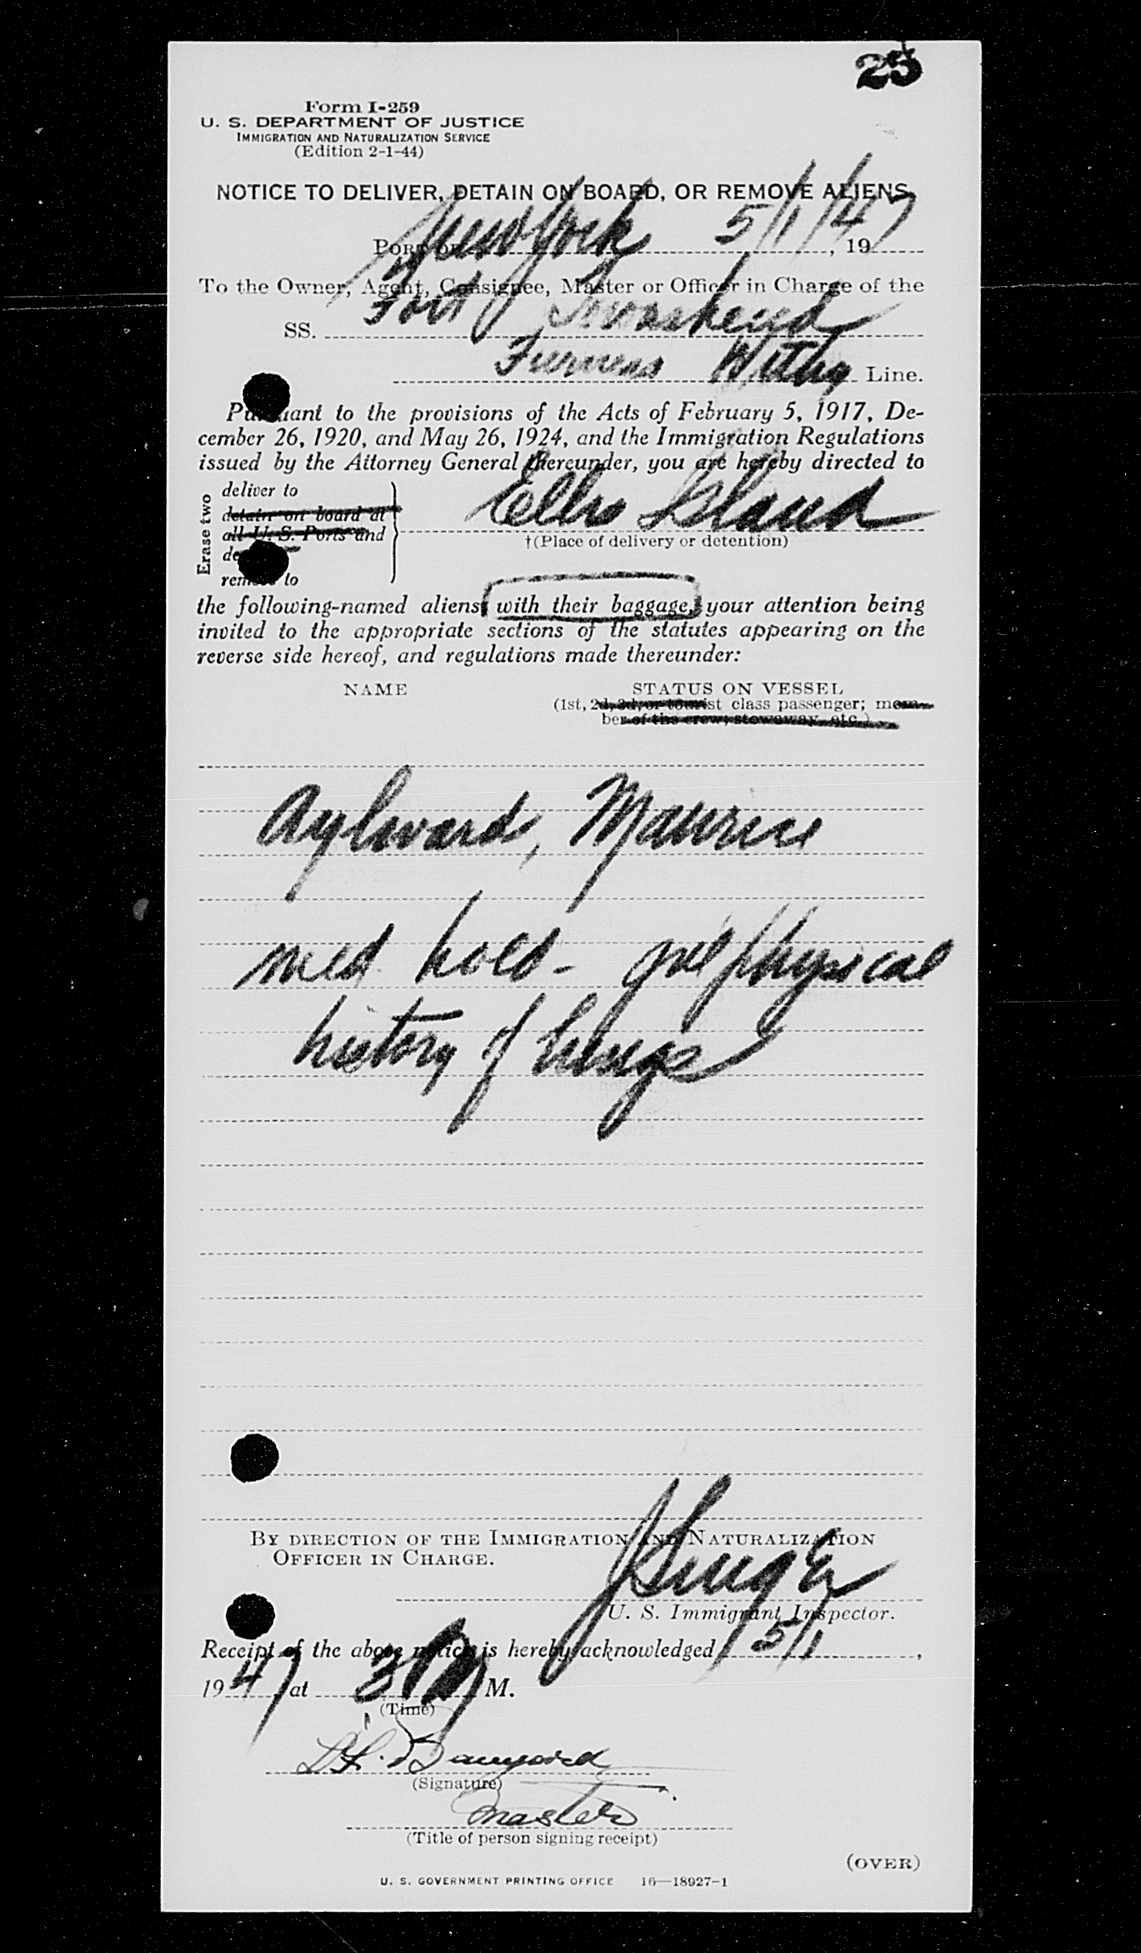 25
Form I-259
U. S. DEPARTMENT OF JUSTICE
IMMIGRATION AND NATURALIZATION SERVICE
(Edition 2-1-44)
NOTICE TO DELIVER, DETAIN ON BOARD, OR REMOVE ALIENS
PORT OF New York 5/1/47, 19
To the Owner, Agent, Consignee, Master or Officer in Charge of the
SS. Fort Townshend
Furness Withy Line.
Pursuant to the provisions of the Acts of February 5, 1917, De-
cember 26, 1920, and May 26, 1924, and the Immigration Regulations
issued by the Attorney General thereunder, you are hereby directed to
Erase two
deliver to
detain on board at
all U. S. Ports and
remove to
Ellis Island
†(Place of delivery or detention)
the following-named aliens, with their baggage, your attention being
invited to the appropriate sections of the statutes appearing on the
reverse side hereof, and regulations made thereunder:
NAME STATUS ON VESSEL
(1st, 2d, 3d, or tourist class passenger; mem-
ber of the crew; stowaway, etc.)
Aylward, Maurice
med hold - physical
history of lungs
BY DIRECTION OF THE IMMIGRATION AND NATURALIZATION
OFFICER IN CHARGE.
J Singer
U. S. Immigrant Inspector.
Receipt of the above notice is hereby acknowledged 5/1,
1947 at 3 P M.
(Time)
(Signature)
Master
(Title of person signing receipt)
(OVER)
U. S. GOVERNMENT PRINTING OFFICE 16—18927-1